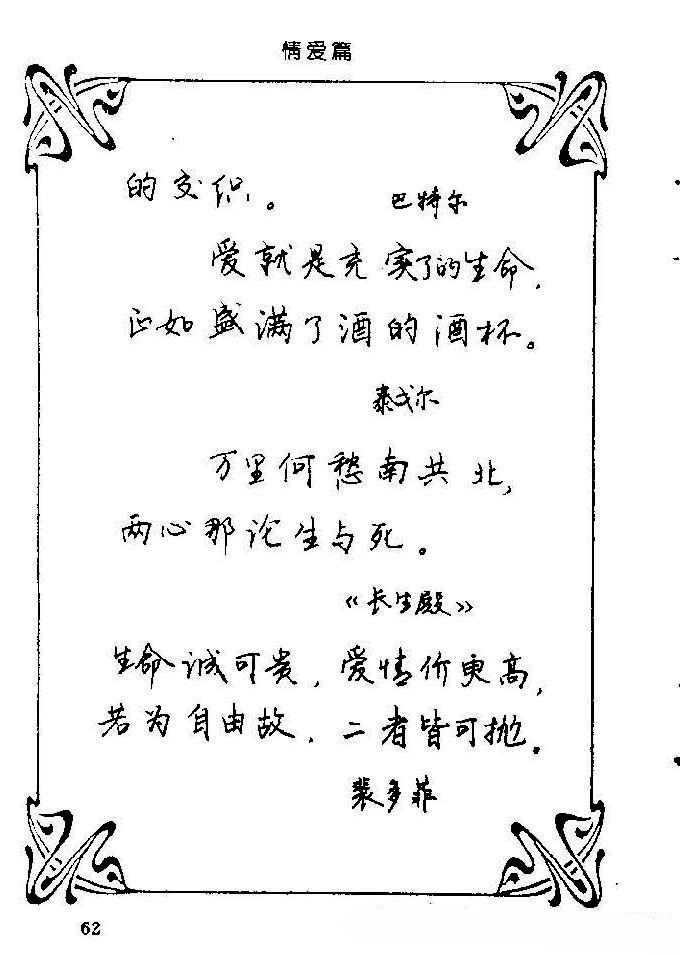 情爱篇
的交织。
巴特尔
爱就是充实了的生命，
正如盛满了酒的酒杯。
泰戈尔
万里何愁南共北，
两心那论生与死。
《长生殿》
生命诚可贵，爱情价更高，
若为自由故，二者皆可抛。
裴多菲
62